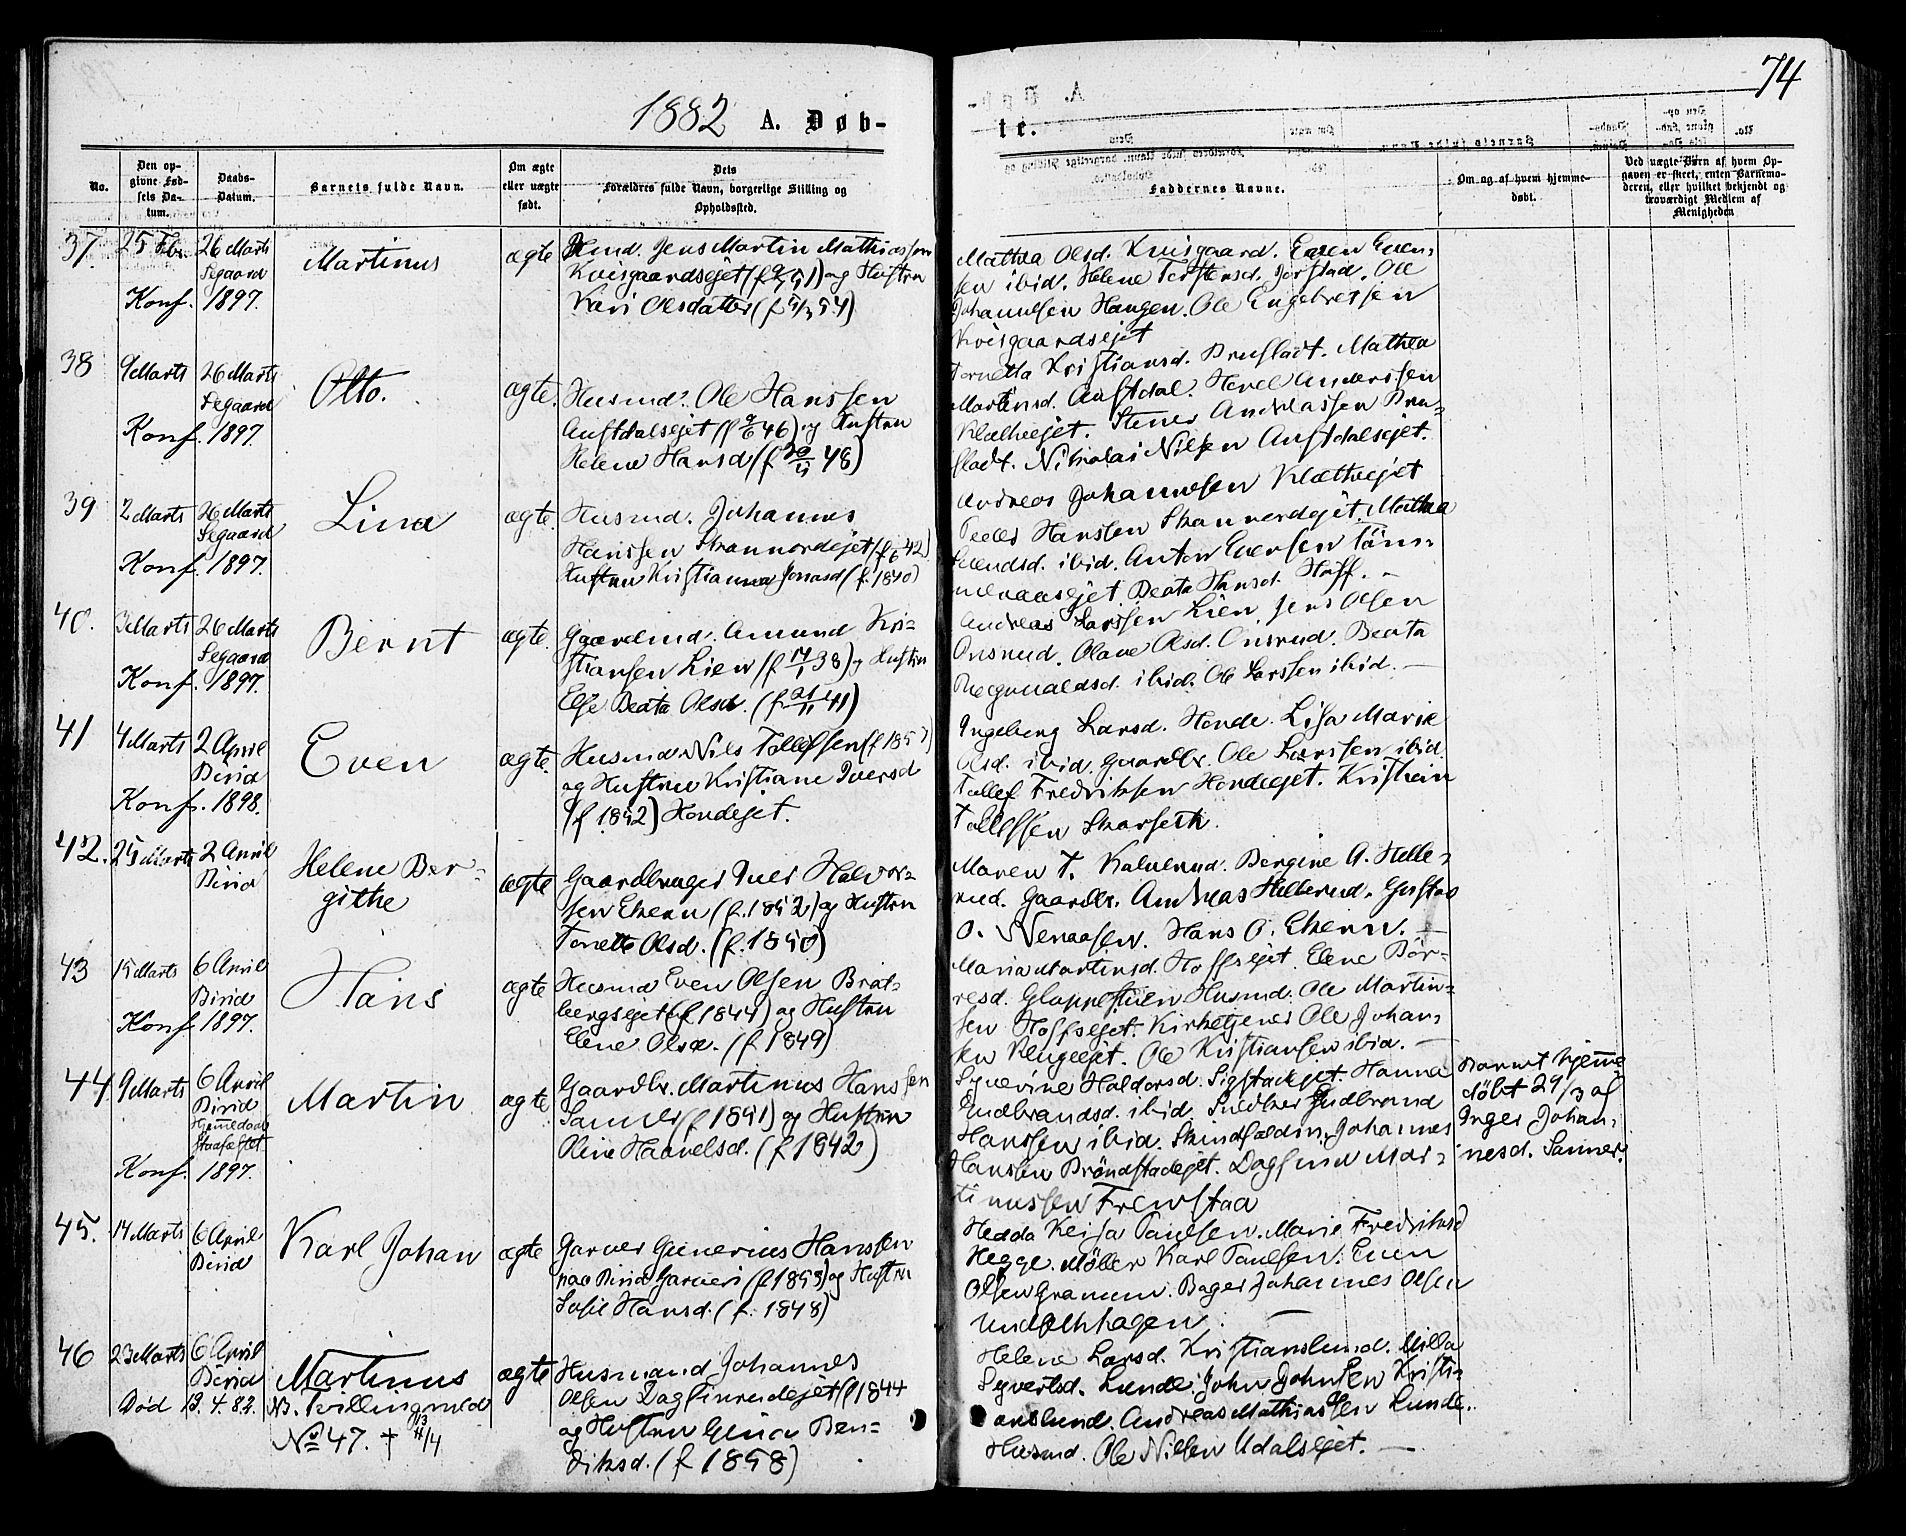 74
1882 A. Døb-
te.
No.
Den op-
givne Fød-
sels Da-
tum.
Daabs-
Datum.
Barnets fulde Navn.
Om ægte
eller uægte
født.
Dets
Forældres fulde Navn, borgerlige Stilling og
Opholdssted.
Faddernes Navne.
Om og af hvem hjemme-
døbt.
Ved uægte Børn af hvem Op-
gaven er skeet, enten Barnemo-
deren, eller hvilket bekjendt og
troværdigt Medlem af
Menigheden
37.
25 Febr.
26 Marts
Segaard
Konf. 1897.
Martinus
ægte
Husmd. Jens Martin Mathiassen
Kvisgaardsejet og Hustru
Kari Olsdatter
Mathea Olsd. Kvisgaard. Even Even-
sen ibid. Helene Torstensd. Jørstad. Ole
Johannesen Haugen. Ole Engebretsen
Kvisgaardsejet
38
9 Marts
26 Marts
Segaard
Konf. 1897.
Otto.
ægte.
Husmd. Ole Hanssen
Austdalsejet (f 9/6 46) og Hustru
Helene Hansd (f 30/11 48)
Tornetta Kristiansd. Brufladt. Mathea
Martinsd. Austdal. Hovel Anderssen
Klætheejet. Stener Andreassen Bru-
fladt. Nikolai Nilsen Austdalsejet.
39
2 Marts
26 Marts
Segaard
Konf. 1897.
Lina
ægte.
Husmd. Johannes
Hanssen Skannerdejet
Hustru Kristianna Jonasd (f. 1840)
Andreas Johannesen Klætheejet
Peder Hanssen Skannerdejet. Mathea
Svendsd. ibid. Anton Evensen
Beata Hansd. Hoff. —
40.
3 Marts
26 Marts
Segaard
Konf. 1897.
Bernt
ægte.
Gaardmd. Amund Kri-
stiansen Lien (f 14/1 38) og Hustru
Else Beata Olsd. (f 21/11 41)
Andreas Larssen Lien Jens Olsen
Onsrud. Olave Olsd. Onsrud. Beata
Regnvaldsd. ibid. Ole Larssen ibid. —
41
4 Marts
2 April
Birid
Konf. 1898.
Even
ægte.
Husmd. Nils Tollefsen
og Hustru Kristiane Iversd
(f 1852) Hondejet.
Ingeborg Larsd. Honde. Lisa Marie
Olsd. ibid. Gaardbr. Ole Larssen ibid
Tollef Fredriksen Hondeejet. Kristian
Tollefsen Skarseth.
42.
25 Marts
2 April
Birid
Helene Ber-
githe
ægte
Gaardbruger Iver Halvor-
sen Ekern (f. 1852) og Hustru
Tonette Olsd. (f. 1850)
Maren T. Kalverud. Bergine A. Helle-
rud. Gaardbr. Andreas Hellerud. Gustav
O. Nenaasen. Hans O. Ekern. —
43
15 Marts
6 April
Birid
Konf 1897.
Hans
ægte
Husmd Even Olsen Brat-
bergsejet (f 1844) og Hustru
Elene Olsd. (f 1849)
Maria Martinsd. Hoffsejet. Elene Bør-
resd. Glappestuen Husmd. Ole Martin-
sen Hoffsejet. Kirketjener Ole Johan-
sen Klugeejet. Ole Kristiansen ibid. —
44
9 Marts
6 April
Birid
Hjemedaab
staafæstet
Konf. 1897.
Martin
ægte
Gaardbr. Martinus Hanssen
Sanner (f 1851) og Hustru
Oline Haavelsd. (f 1842)
Syverine Haldorsd. Sigstadejet. Hanna
Gudbrandsd. ibid. Snedker Gudbrand
Hanssen ibid. Skindfældm. Johannes
Hanssen Brøndstadejet. Dagfind Mar-
tinussen Frenstad
Barnet hjemme
døbt 29/3 af
Inger Johan-
nesd. Sanner.
45.
14 Marts
6 April
Birid
Karl Johan
ægte
Garver Gunerius Hanssen
paa Birid Garveri (f 1853) og Hustru
Sofie Hansd. (f. 1848)
Hedda Keisa Paulsen. Marie Fredriksd
Hegge. Møller Karl Paulsen. Even
Olsen Gramm. Bager Johannes Olsen
46
23 Marts
6 April
Birid
Død 13.4.82.
Martinus
NB. Tvillingmed
No 47. † 13/4
ægte
Husmand Johannes
Olsen Dagfinrudejet (f 1844
og Hustru Gina Ben-
diksd. (f 1858)
Helene Larsd. Kristianslund. Milla
Syvertsd. Lunde. John Johnsen Kristi-
anslund. Andreas Mathiassen Lunde.
Husmd. Ole Nilsen Udalsejet. —